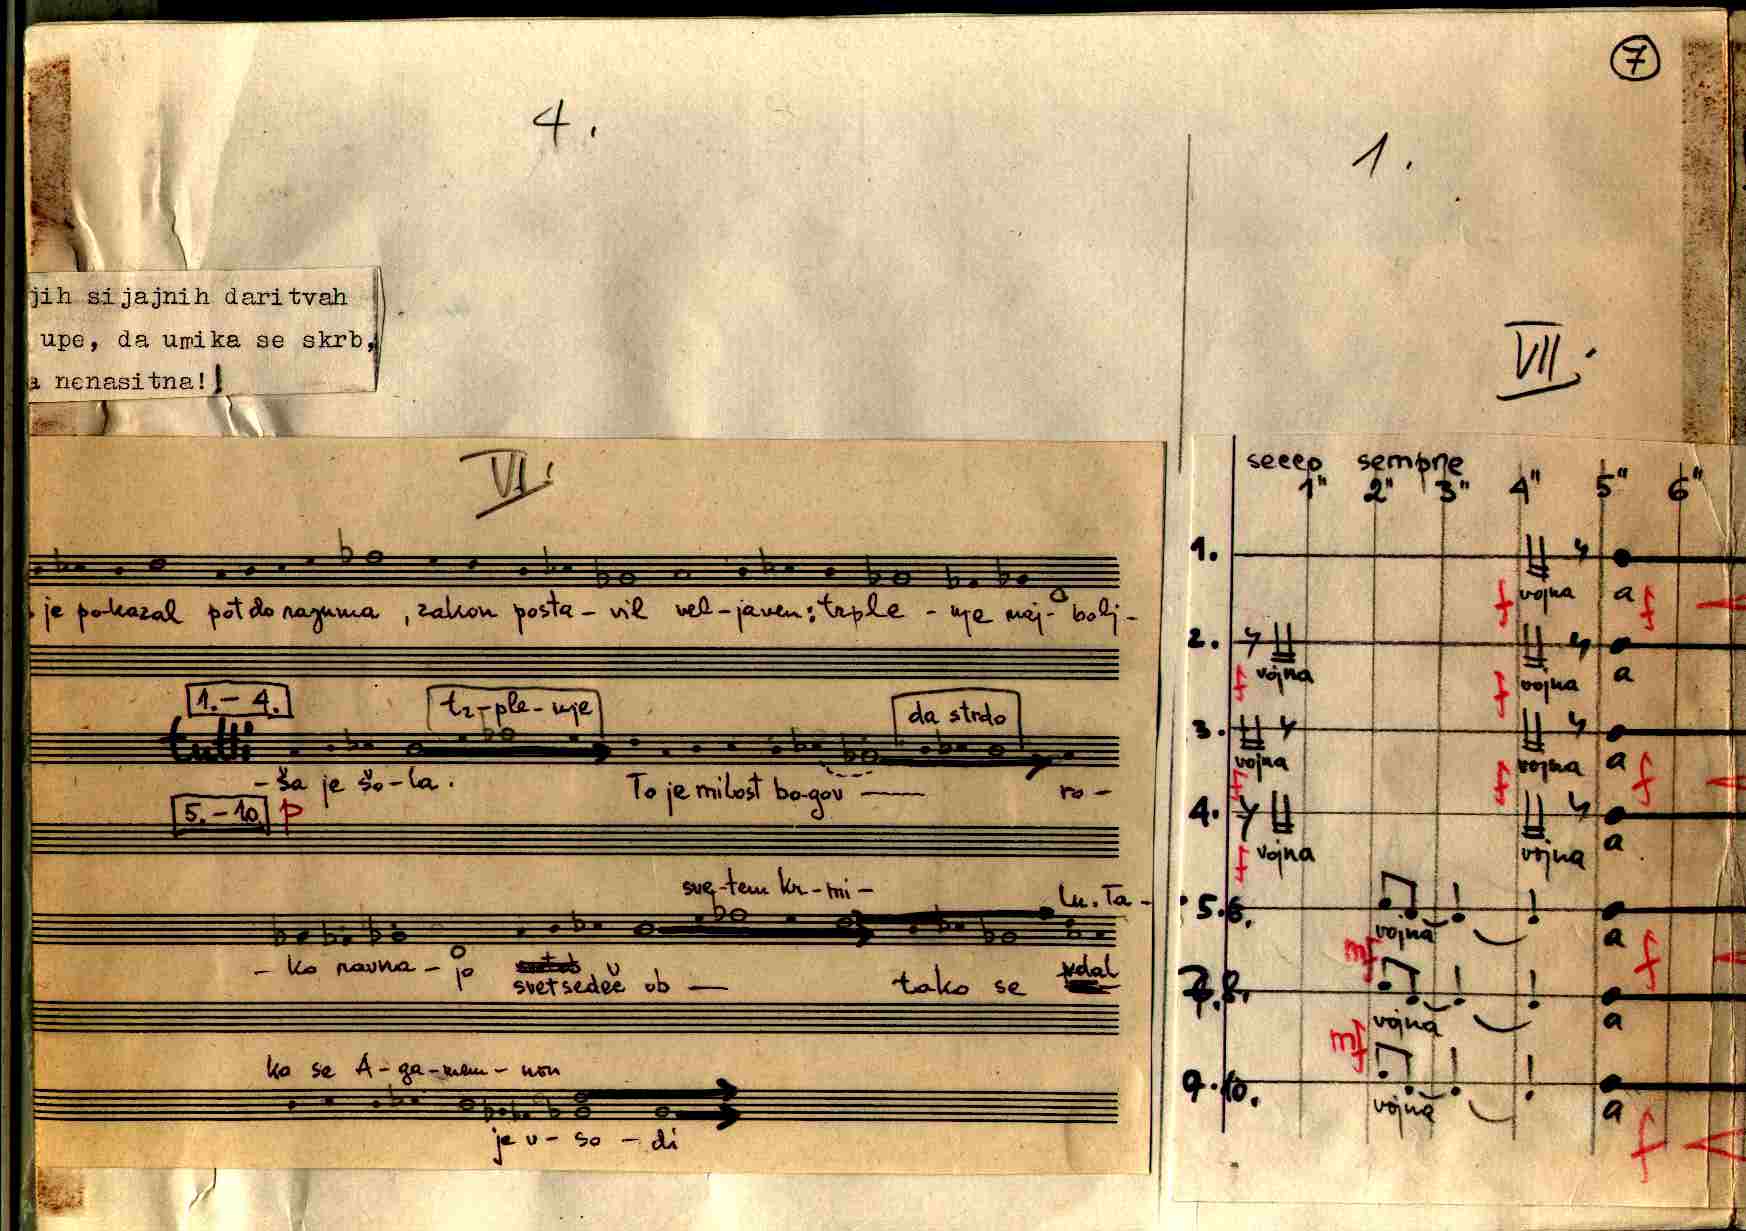 7
4.
1.
jih sijajnih daritvah
upe, da umika se skrb,
a nenasitna!
VI.
je pokazal pot do razuma, zakon posta - vil vel-javen: trple - nje naj- bolj-
1. - 4.
tr-ple-nje
da strdo
tutti
-ša je šo-la.
To je milost bo-gov
ro -
5. - 10.
p
sve-tem kr-mi -
lu. Ta -
- ko ravna - jo
svet sedeč ob
tako se
vdal
ko se A-ga-mem-non
je u - so - di
VII.
secco sempre
1" 2" 3" 4" 5" 6"
1.
vojna
a
f
f
2.
vojna
vojna
a
f
f
3.
vojna
vojna
a
f
f
f
4.
vojna
vojna
a
f
5.6.
vojna
a
mf
f
7.8.
vojna
a
mf
9.10.
vojna
a
f